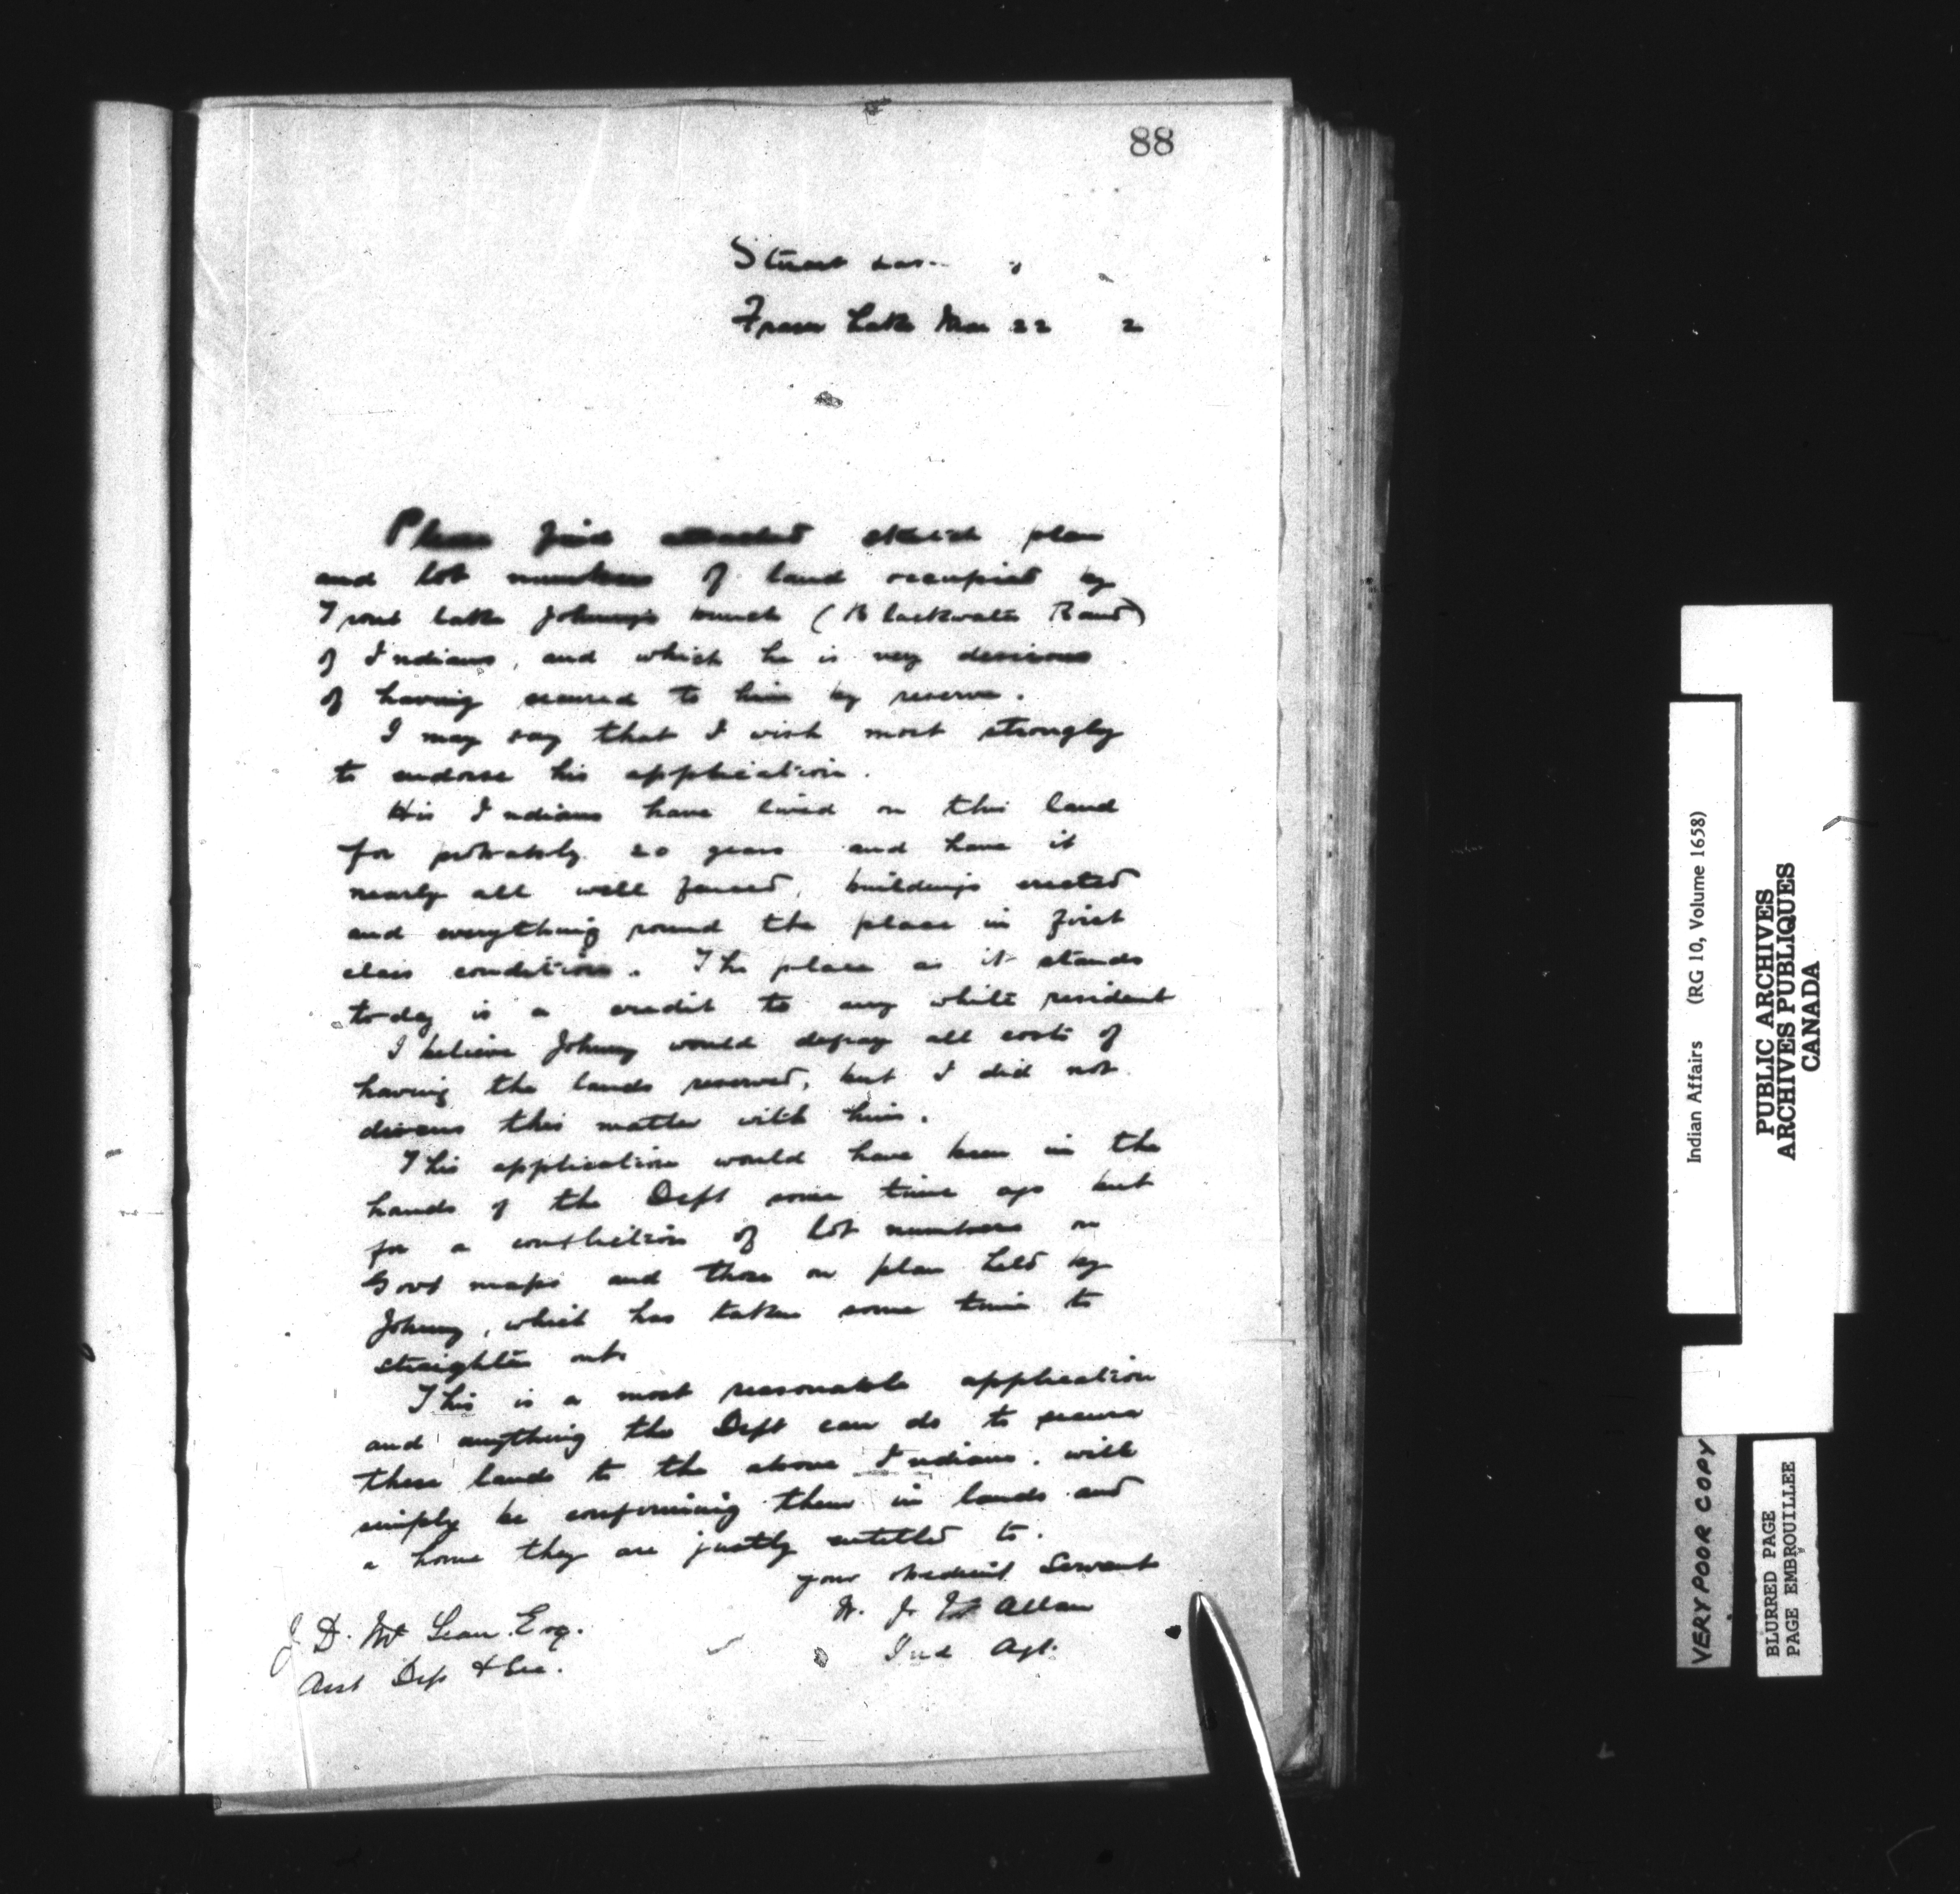 88
Stuart Lake
Fraser Lake Mar 22 2
Please find attached sketch plan
and lot numbers of land occupied by
Trout Lake Johnny's bunch (Blackwater Band)
of Indians, and which he is very desirous
of having secured to him by reserve.
I may say that I wish most strongly
to endorse his application.
His Indians have lived on this land
for probably 20 years and have it
nearly all well fenced, buildings erected
and everything round the place in first
class condition. The place as it stands
to-day is a credit to any white resident
I believe Johnny would defray all costs of
having the lands reserved, but I did not
discuss this matter with him.
This application would have been in the
hands of the Dept some time ago but
for a confliction of lot numbers on
Govt maps and those on plan held by
Johnny, which has taken some time to
straighten out.
This is a most reasonable application
and anything the Dept can do to secure
these lands to the above Indians, will
simply be confirming them in lands and
a home they are justly entitled to.
your obedient Servant
W. J. Mc Allan
Ind Agt.
J. D. Mc Lean Esq.
Asst Dep & Sec.
Indian Affairs (RG 10, Volume 1658)
PUBLIC ARCHIVES
ARCHIVES PUBLIQUES
CANADA
VERY POOR COPY
BLURRED PAGE
PAGE EMBROUILLEE